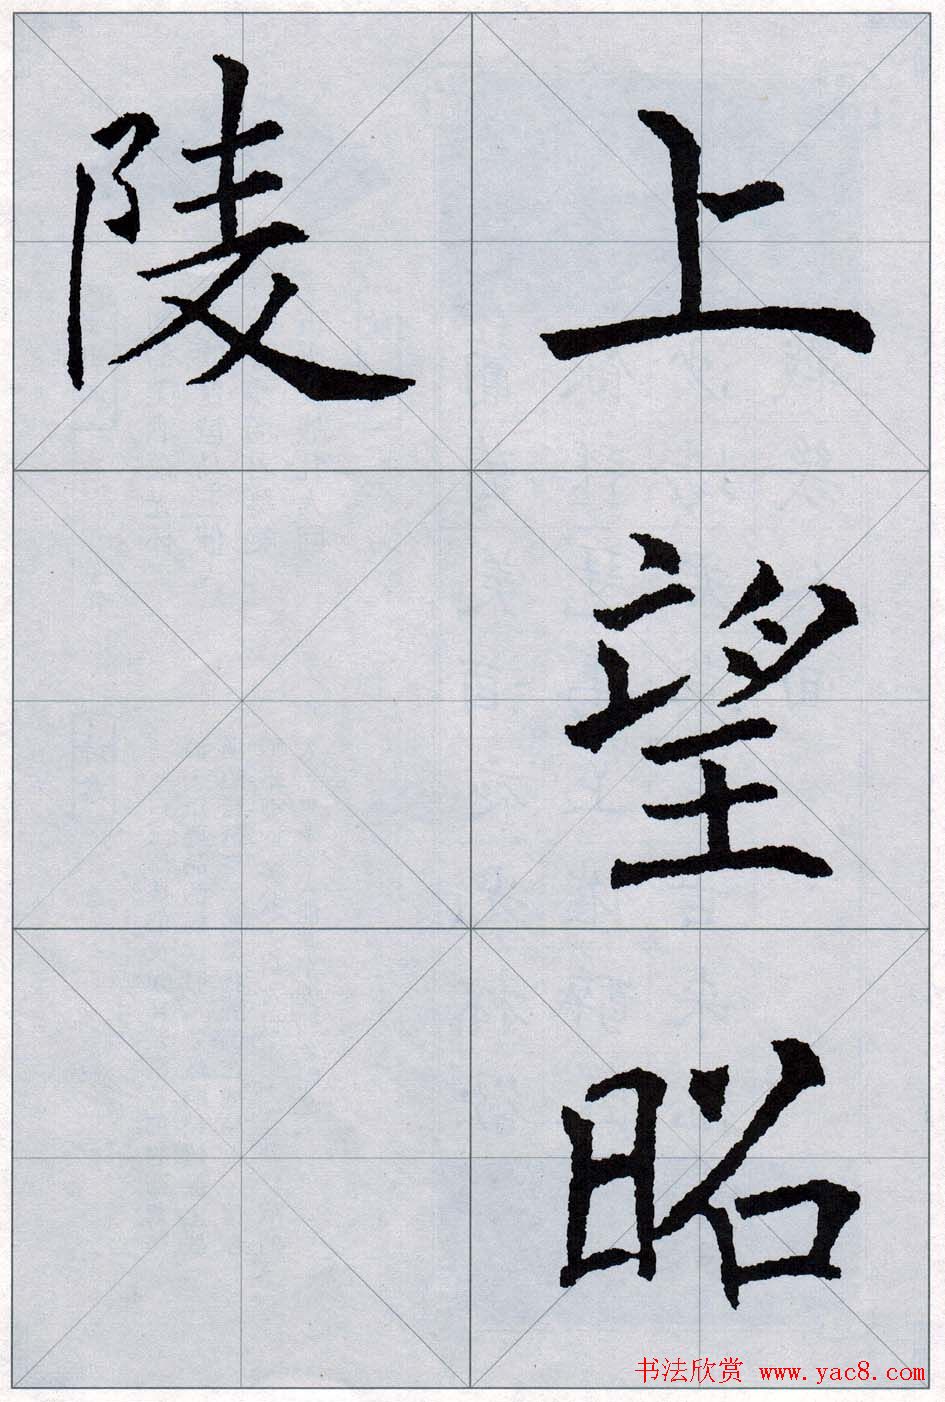 上望昭
陵
书法欣赏 www.yac8.com